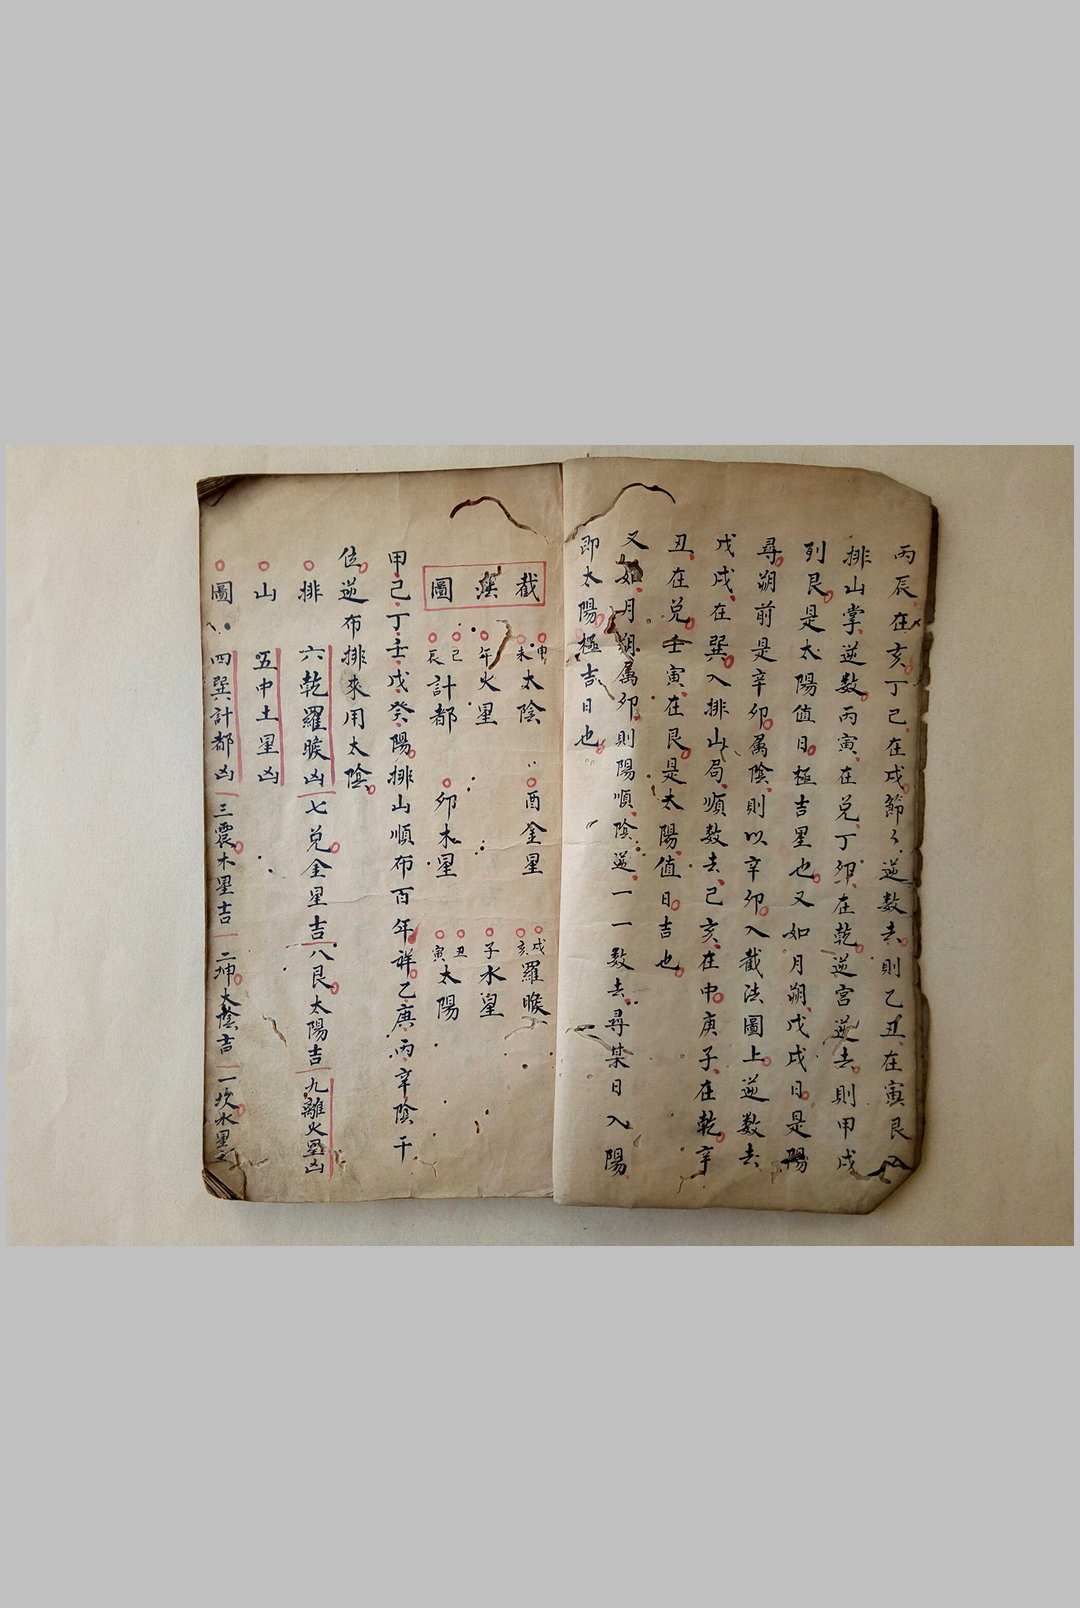 丙辰在亥丁己在戌節々逆数去則乙丑在寅艮入
排山掌逆数丙寅在兌丁卯在乾逆宮逆去則甲戌
列艮是太陽值日極吉星也又如月朔戊戌日是陽
尋朔前是辛卯属陰則以辛卯入截法圖上逆数去
戊戌在巽入排山局順数去己亥在中庚子在乾辛
丑在兌壬寅在艮是太陽值日吉也
又如月朔属卯則陽順陰逆一一数去尋某日入陽
即太陽極吉日也
截 申未太陰 酉金星 戌亥羅睺
午火星 子水星
圖 己辰計都 卯木星 丑寅太陽
甲己丁壬戊癸陽排山順布百年祥乙庚丙辛陰干
位逆布排來用太陰
排 六乾羅睺凶 七兌金星吉 八艮太陽吉 九離火星凶
山 五中土星凶
圖 四巽計都凶 三震木星吉 二坤太陰吉 一坎水星